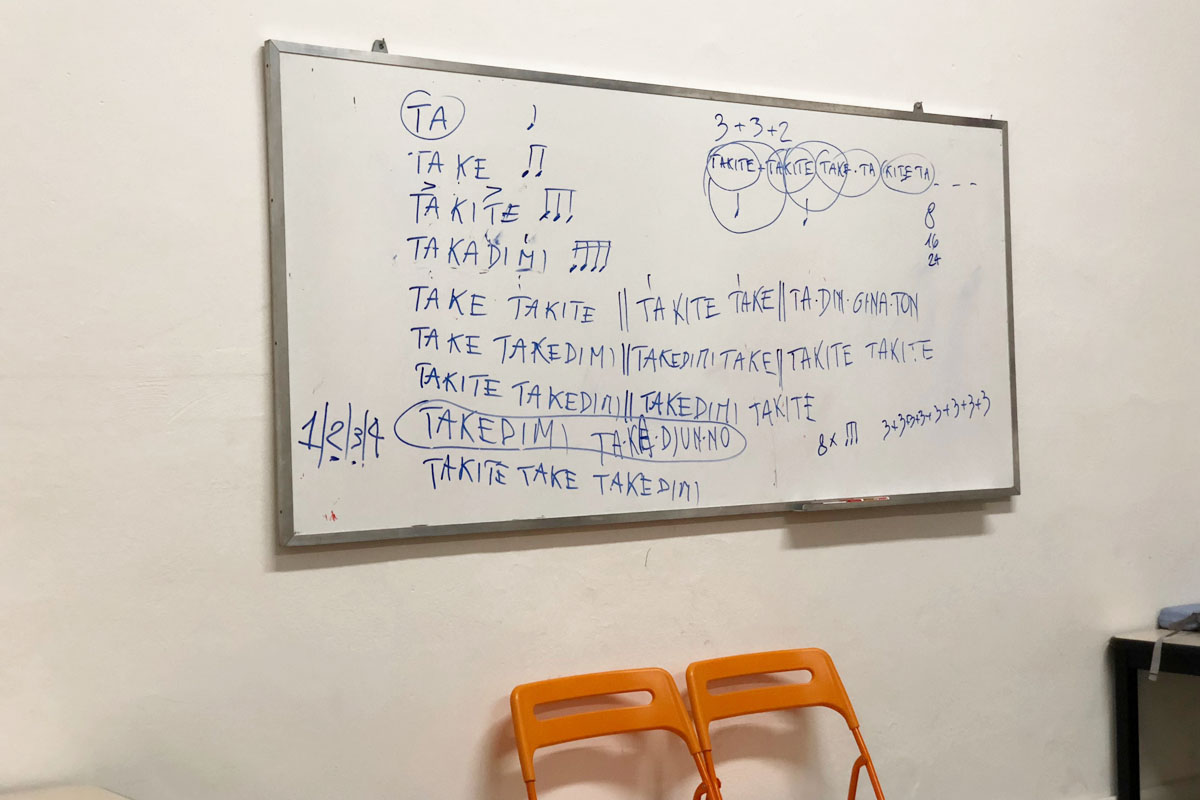 TA
TAKE
TAKITE
TAKADIMI
TAKE TAKITE || TAKITE TAKE || TA·DIN·GINA·TON
TAKE TAKEDIMI || TAKEDIMI TAKE || TAKITE TAKITE
TAKITE TAKEDIMI || TAKEDIMI TAKITE
1|2|3|4 TAKEDIMI TA·KE·DJUN·NO
TAKITE TAKE TAKEDIMI
3+3+2
TAKITE + TAKITE TAKE·TA KITETA - - -
8
16
24
8x
3+3+3+3+3+3+3+3